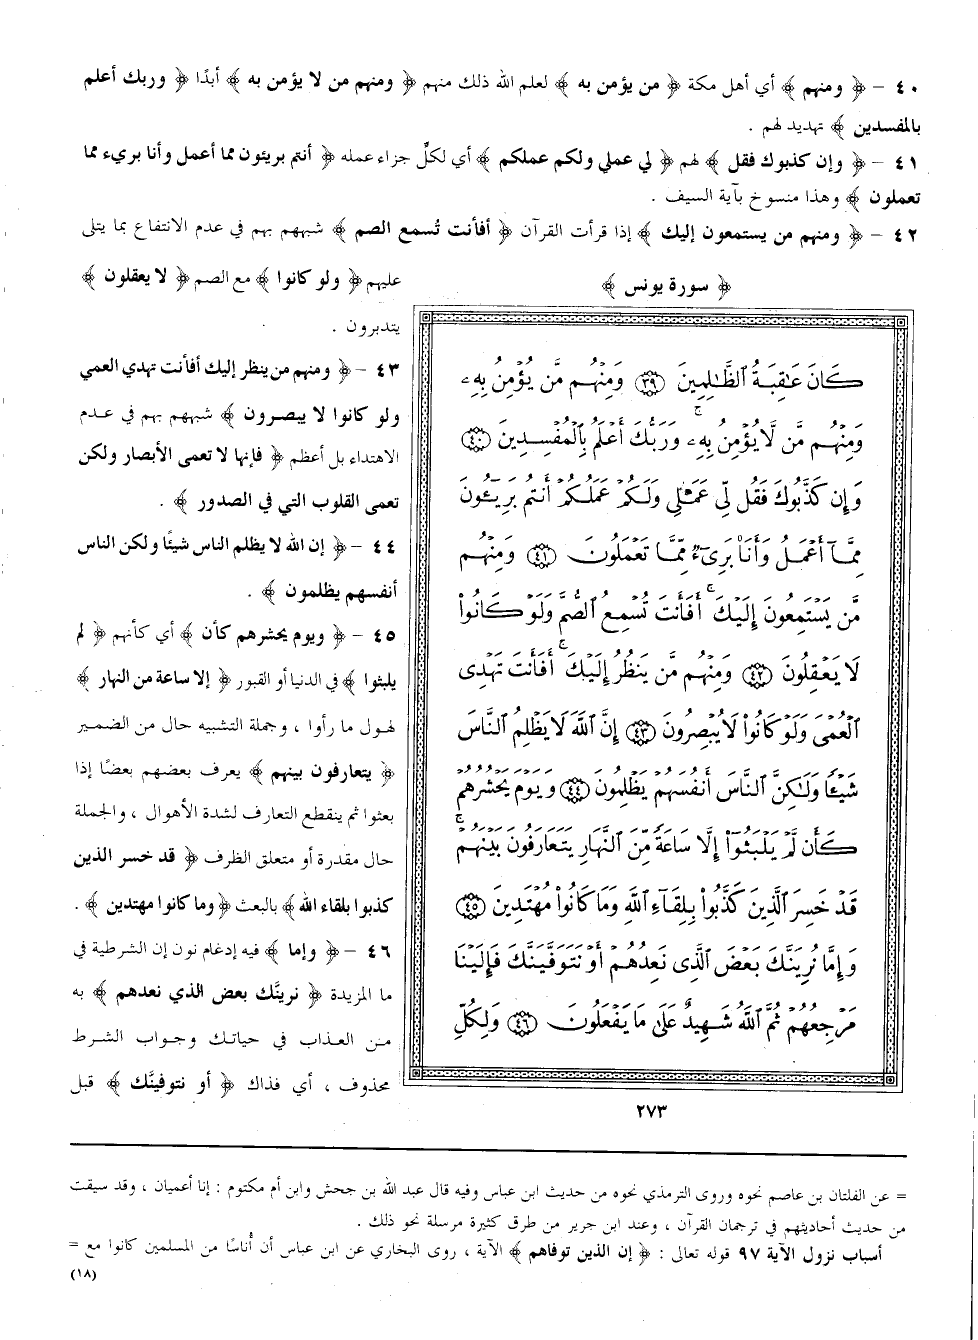 ٤٠ - ﴿ ومنهم ﴾ أي أهل مكة ﴿ من يؤمن به ﴾ لعلم الله ذلك منهم ﴿ ومنهم من لا يؤمن به ﴾ أبدًا ﴿ وربك أعلم
بالمفسدين ﴾ تهديد لهم .
٤١ - ﴿ وإن كذبوك فقل ﴾ لهم ﴿ لي عملي ولكم عملكم ﴾ أي لكلّ جزاء عمله ﴿ أنتم بريئون مما أعمل وأنا بريء مما
تعملون ﴾ وهذا منسوخ بآية السيف .
٤٢ - ﴿ ومنهم من يستمعون إليك ﴾ إذا قرأت القرآن ﴿ أفأنت تُسمع الصم ﴾ شبههم بهم في عدم الانتفاع بما يتلى
عليهم ﴿ ولو كانوا ﴾ مع الصم ﴿ لا يعقلون ﴾
يتدبرون .
٤٣ - ﴿ ومنهم من ينظر إليك أفأنت تهدي العمي
ولو كانوا لا يبصرون ﴾ شبههم بهم في عدم
الاهتداء بل أعظم ﴿ فإنها لا تعمى الأبصار ولكن
تعمى القلوب التي في الصدور ﴾ .
٤٤ - ﴿ إن الله لا يظلم الناس شيئًا ولكن الناس
أنفسهم يظلمون ﴾ .
٤٥ - ﴿ ويوم يحشرهم كأن ﴾ أي كأنهم ﴿ لم
يلبثوا ﴾ في الدنيا أو القبور ﴿ إلا ساعة من النهار ﴾
لهول ما رأوا ، وجملة التشبيه حال من الضمير
﴿ يتعارفون بينهم ﴾ يعرف بعضهم بعضًا إذا
بعثوا ثم ينقطع التعارف لشدة الأهوال ، والجملة
حال مقدرة أو متعلق الظرف ﴿ قد خسر الذين
كذبوا بلقاء الله ﴾ بالبعث ﴿ وما كانوا مهتدين ﴾ .
٤٦ - ﴿ وإما ﴾ فيه إدغام نون إن الشرطية في
ما المزيدة ﴿ نرينَّك بعض الذي نعدهم ﴾ به
من العذاب في حياتك وجواب الشرط
محذوف ، أي فذاك ﴿ أو نتوفينَّك ﴾ قبل
﴿ سورة يونس ﴾
كَانَ عَٰقِبَةُ ٱلظَّٰلِمِينَ ٣٩ وَمِنْهُم مَّن يُؤْمِنُ بِهِۦ
وَمِنْهُم مَّن لَّا يُؤْمِنُ بِهِۦ ۚ وَرَبُّكَ أَعْلَمُ بِٱلْمُفْسِدِينَ ٤٠
وَإِن كَذَّبُوكَ فَقُل لِّى عَمَلِى وَلَكُمْ عَمَلُكُمْ أَنتُم بَرِيٓـُٔونَ
مِمَّآ أَعْمَلُ وَأَنَا۠ بَرِىٓءٌ مِّمَّا تَعْمَلُونَ ٤١ وَمِنْهُم
مَّن يَسْتَمِعُونَ إِلَيْكَ ۚ أَفَأَنتَ تُسْمِعُ ٱلصُّمَّ وَلَوْ كَانُوا۟
لَا يَعْقِلُونَ ٤٢ وَمِنْهُم مَّن يَنظُرُ إِلَيْكَ ۚ أَفَأَنتَ تَهْدِى
ٱلْعُمْىَ وَلَوْ كَانُوا۟ لَا يُبْصِرُونَ ٤٣ إِنَّ ٱللَّهَ لَا يَظْلِمُ ٱلنَّاسَ
شَيْـًٔا وَلَٰكِنَّ ٱلنَّاسَ أَنفُسَهُمْ يَظْلِمُونَ ٤٤ وَيَوْمَ يَحْشُرُهُمْ
كَأَن لَّمْ يَلْبَثُوٓا۟ إِلَّا سَاعَةً مِّنَ ٱلنَّهَارِ يَتَعَارَفُونَ بَيْنَهُمْ ۚ
قَدْ خَسِرَ ٱلَّذِينَ كَذَّبُوا۟ بِلِقَآءِ ٱللَّهِ وَمَا كَانُوا۟ مُهْتَدِينَ ٤٥
وَإِمَّا نُرِيَنَّكَ بَعْضَ ٱلَّذِى نَعِدُهُمْ أَوْ نَتَوَفَّيَنَّكَ فَإِلَيْنَا
مَرْجِعُهُمْ ثُمَّ ٱللَّهُ شَهِيدٌ عَلَىٰ مَا يَفْعَلُونَ ٤٦ وَلِكُلِّ
٢٧٣
= عن الفلتان بن عاصم نحوه وروى الترمذي نحوه من حديث ابن عباس وفيه قال عبد الله بن جحش وابن أم مكتوم : إنا أعميان ، وقد سيقت
من حديث أحاديثهم في ترجمان القرآن ، وعند ابن جرير من طرق كثيرة مرسلة نحو ذلك .
أسباب نزول الآية ٩٧ قوله تعالى : ﴿ إن الذين توفاهم ﴾ الآية ، روى البخاري عن ابن عباس أن أناسًا من المسلمين كانوا مع =
(١٨)